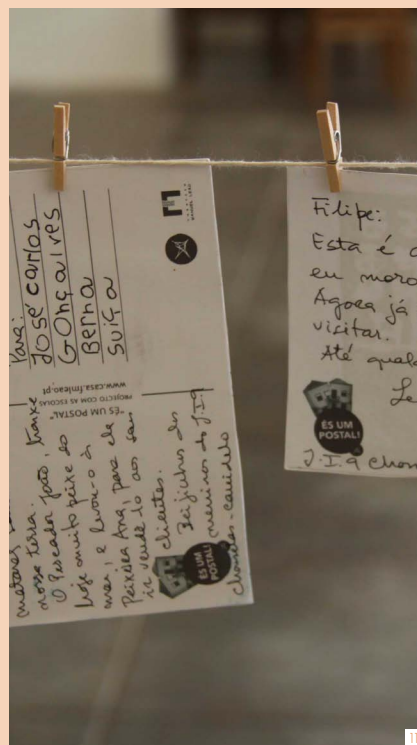 Para:
José carlos
Gonçalves
Berna
Suiça
"ÉS UM POSTAL"
PROJECTO COM AS ESCOLAS
www.casa.fmleao.pt
nossa terra.
O Pescador João, trouxe
hoje muito peixe do
mar, e levou-o à
Peixeira Ana, para ela
ir vendê-lo aos seus
clientes.
Beijinhos dos
meninos do J.I.9
canidelo
ÉS UM
POSTAL!
Filipe:
Esta é
eu moro
Agora já
visitar.
Até
ÉS UM
POSTAL!
J.I.9